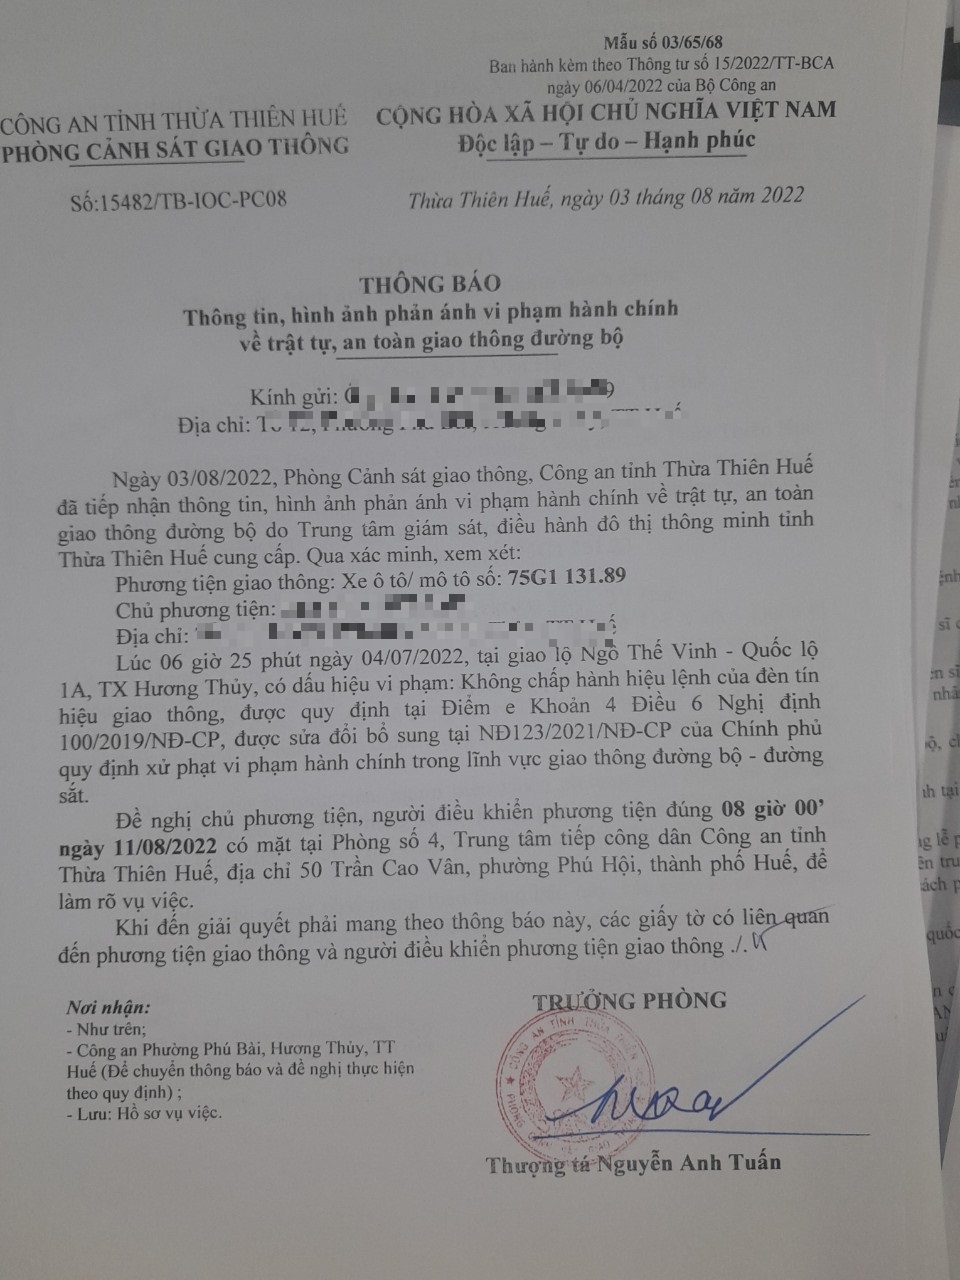 Mẫu số 03/65/68
Ban hành kèm theo Thông tư số 15/2022/TT-BCA
ngày 06/04/2022 của Bộ Công an
CÔNG AN TỈNH THỪA THIÊN HUẾ
PHÒNG CẢNH SÁT GIAO THÔNG
CỘNG HÒA XÃ HỘI CHỦ NGHĨA VIỆT NAM
Độc lập – Tự do – Hạnh phúc
Số:15482/TB-IOC-PC08
Thừa Thiên Huế, ngày 03 tháng 08 năm 2022
THÔNG BÁO
Thông tin, hình ảnh phản ánh vi phạm hành chính
về trật tự, an toàn giao thông đường bộ
Kính gửi:
Địa chỉ:
Ngày 03/08/2022, Phòng Cảnh sát giao thông, Công an tỉnh Thừa Thiên Huế
đã tiếp nhận thông tin, hình ảnh phản ánh vi phạm hành chính về trật tự, an toàn
giao thông đường bộ do Trung tâm giám sát, điều hành đô thị thông minh tỉnh
Thừa Thiên Huế cung cấp. Qua xác minh, xem xét:
Phương tiện giao thông: Xe ô tô/ mô tô số: 75G1 131.89
Chủ phương tiện:
Địa chỉ:
Lúc 06 giờ 25 phút ngày 04/07/2022, tại giao lộ Ngô Thế Vinh - Quốc lộ
1A, TX Hương Thủy, có dấu hiệu vi phạm: Không chấp hành hiệu lệnh của đèn tín
hiệu giao thông, được quy định tại Điểm e Khoản 4 Điều 6 Nghị định
100/2019/NĐ-CP, được sửa đổi bổ sung tại NĐ123/2021/NĐ-CP của Chính phủ
quy định xử phạt vi phạm hành chính trong lĩnh vực giao thông đường bộ - đường
sắt.
Đề nghị chủ phương tiện, người điều khiển phương tiện đúng 08 giờ 00’
ngày 11/08/2022 có mặt tại Phòng số 4, Trung tâm tiếp công dân Công an tỉnh
Thừa Thiên Huế, địa chỉ 50 Trần Cao Vân, phường Phú Hội, thành phố Huế, để
làm rõ vụ việc.
Khi đến giải quyết phải mang theo thông báo này, các giấy tờ có liên quan
đến phương tiện giao thông và người điều khiển phương tiện giao thông ./.
Nơi nhận:
- Như trên;
- Công an Phường Phú Bài, Hương Thủy, TT
Huế (Để chuyển thông báo và đề nghị thực hiện
theo quy định) ;
- Lưu: Hồ sơ vụ việc.
TRƯỞNG PHÒNG
Thượng tá Nguyễn Anh Tuấn